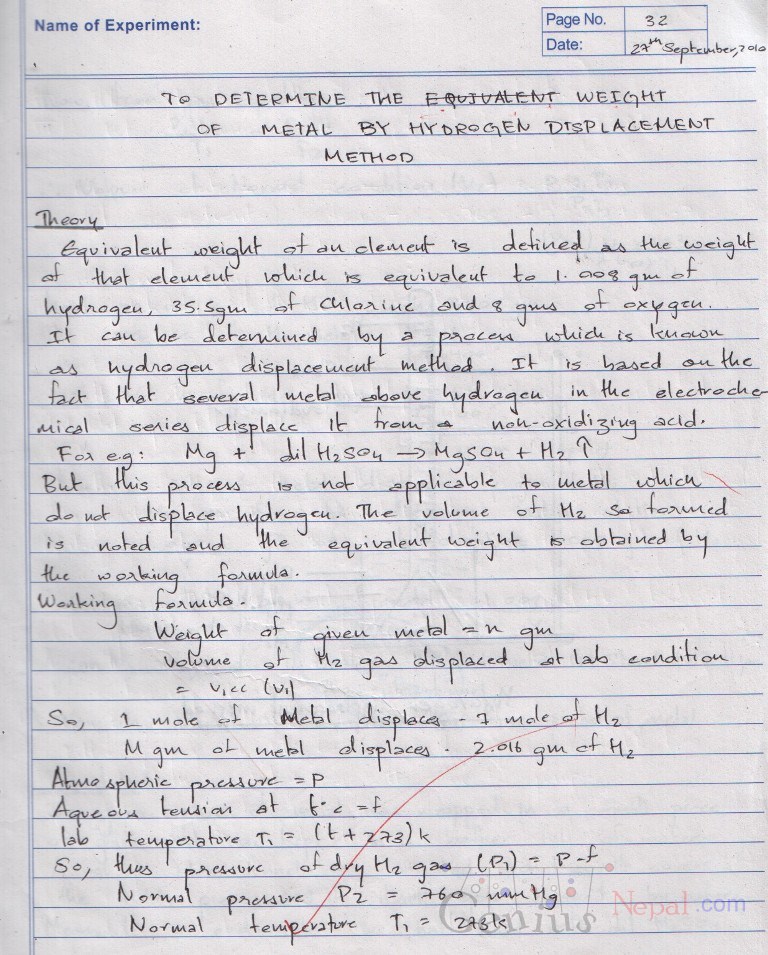 Name of Experiment:
Page No. 32
Date: 27th September, 2010
TO DETERMINE THE EQUIVALENT WEIGHT
OF METAL BY HYDROGEN DISPLACEMENT
METHOD
Theory
Equivalent weight of an element is defined as the weight
of that element which is equivalent to 1.008 gm of
hydrogen, 35.5gm of chlorine and 8 gms of oxygen.
It can be determined by a process which is known
as hydrogen displacement method. It is based on the
fact that several metal above hydrogen in the electroche-
mical series displace it from a non-oxidizing acid.
For e.g: Mg + dil H2SO4 → MgSO4 + H2 ↑
But this process is not applicable to metal which
do not displace hydrogen. The volume of H2 so formed
is noted and the equivalent weight is obtained by
the working formula.
Working formula.
Weight of given metal = n gm
volume of H2 gas displaced at lab condition
= V1cc (V1)
So, 1 mole of Metal displaces - 7 mole of H2
M gm of metal displaces . 2.016 gm of H2
Atmospheric pressure = P
Aqueous tension at t°c = f
lab temperature T1 = (t + 273) k
So, thus pressure of dry H2 gas (P1) = P-f
Normal pressure P2 = 760 mmHg
Normal temperature T1 = 273k
Genius Nepal.com